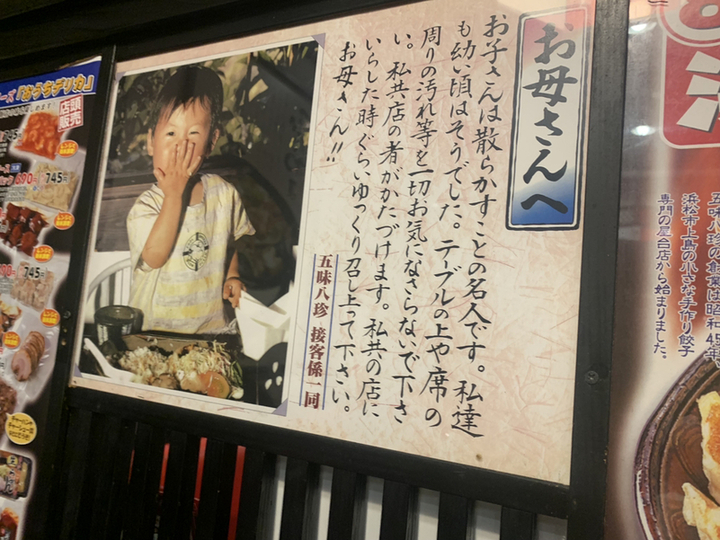 お母さんへ
お子さんは散らかすことの名人です。私達
も幼い頃はそうでした。テーブルの上や席の
周りの汚れ等を一切お気になさらないで下さ
い。私共店の者がかたづけます。私共の店に
いらした時ぐらいゆっくり召し上って下さい。
お母さん!!
五味八珍 接客係一同
五味八珍の創業は昭和45年、
浜松市上島の小さな手作り餃子
専門の屋台店から始まりました。
『おうちデリカ』
店頭
販売
745円
890円
745円